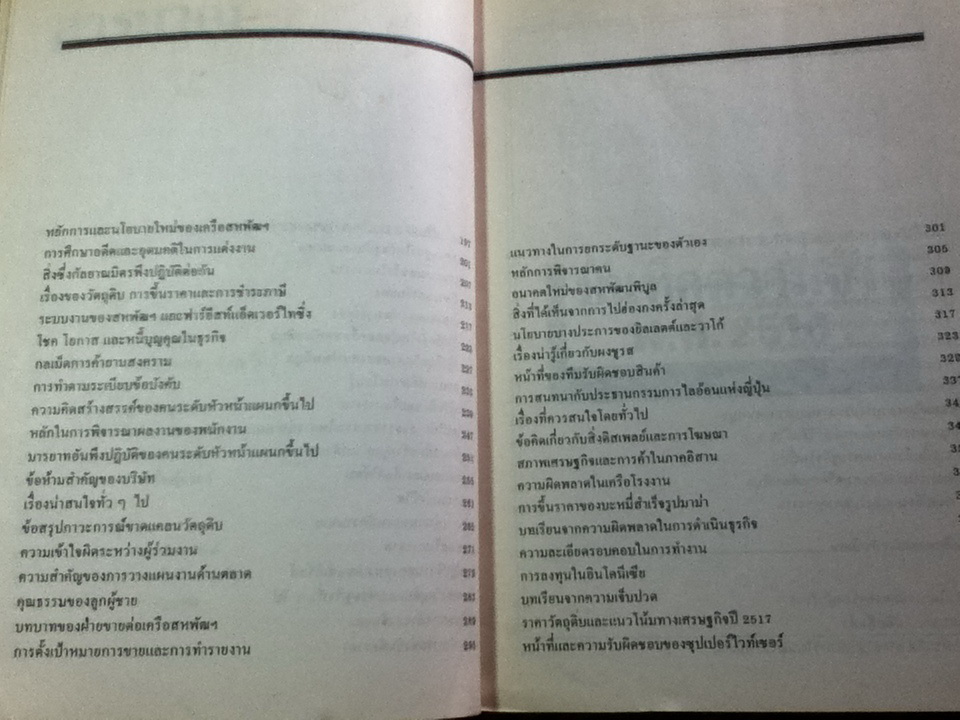 หลักการและนโยบายใหม่ของเครือสหพัฒฯ
การศึกษาอดีตและอุดมคติในการแต่งงาน
สิ่งซึ่งกัลยาณมิตรพึงปฏิบัติต่อกัน
เรื่องของวัตถุดิบ การขึ้นราคาและการชำระภาษี
ระบบงานของสหพัฒฯ และฟาร์อีสท์แอ็ดเวอร์ไทซิ่ง
โชค โอกาส และหนี้บุญคุณในธุรกิจ
กลเม็ดการค้ายามสงคราม
การทำตามระเบียบข้อบังคับ
ความคิดสร้างสรรค์ของคนระดับหัวหน้าแผนกขึ้นไป
หลักในการพิจารณาผลงานของพนักงาน
มารยาทอันพึงปฏิบัติของคนระดับหัวหน้าแผนกขึ้นไป
ข้อห้ามสำคัญของบริษัท
เรื่องน่าสนใจทั่ว ๆ ไป
ข้อสรุปภาวะการณ์ขาดแคลนวัตถุดิบ
ความเข้าใจผิดระหว่างผู้ร่วมงาน
ความสำคัญของการวางแผนงานด้านตลาด
คุณธรรมของลูกผู้ชาย
บทบาทของฝ่ายขายต่อเครือสหพัฒฯ
การตั้งเป้าหมายการขายและการทำรายงาน
แนวทางในการยกระดับฐานะของตัวเอง 301
หลักการพิจารณาคน 305
อนาคตใหม่ของสหพัฒนพิบูล 309
สิ่งที่ได้เห็นจากการไปฮ่องกงครั้งล่าสุด 313
นโยบายบางประการของยิลเลตต์และวาโก้ 317
เรื่องน่ารู้เกี่ยวกับผงชูรส 323
หน้าที่ของทีมรับผิดชอบสินค้า 329
การสนทนากับประธานกรรมการไลอ้อนแห่งญี่ปุ่น 337
เรื่องที่ควรสนใจโดยทั่วไป
ข้อคิดเกี่ยวกับสิ่งดิสเพลย์และการโฆษณา
สภาพเศรษฐกิจและการค้าในภาคอิสาน
ความผิดพลาดในเครือโรงงาน
การขึ้นราคาของบะหมี่สำเร็จรูปมาม่า
บทเรียนจากความผิดพลาดในการดำเนินธุรกิจ
ความละเอียดรอบคอบในการทำงาน
การลงทุนในอินโดนีเซีย
บทเรียนจากความเจ็บปวด
ราคาวัตถุดิบและแนวโน้มทางเศรษฐกิจปี 2517
หน้าที่และความรับผิดชอบของซุปเปอร์ไวท์เซอร์